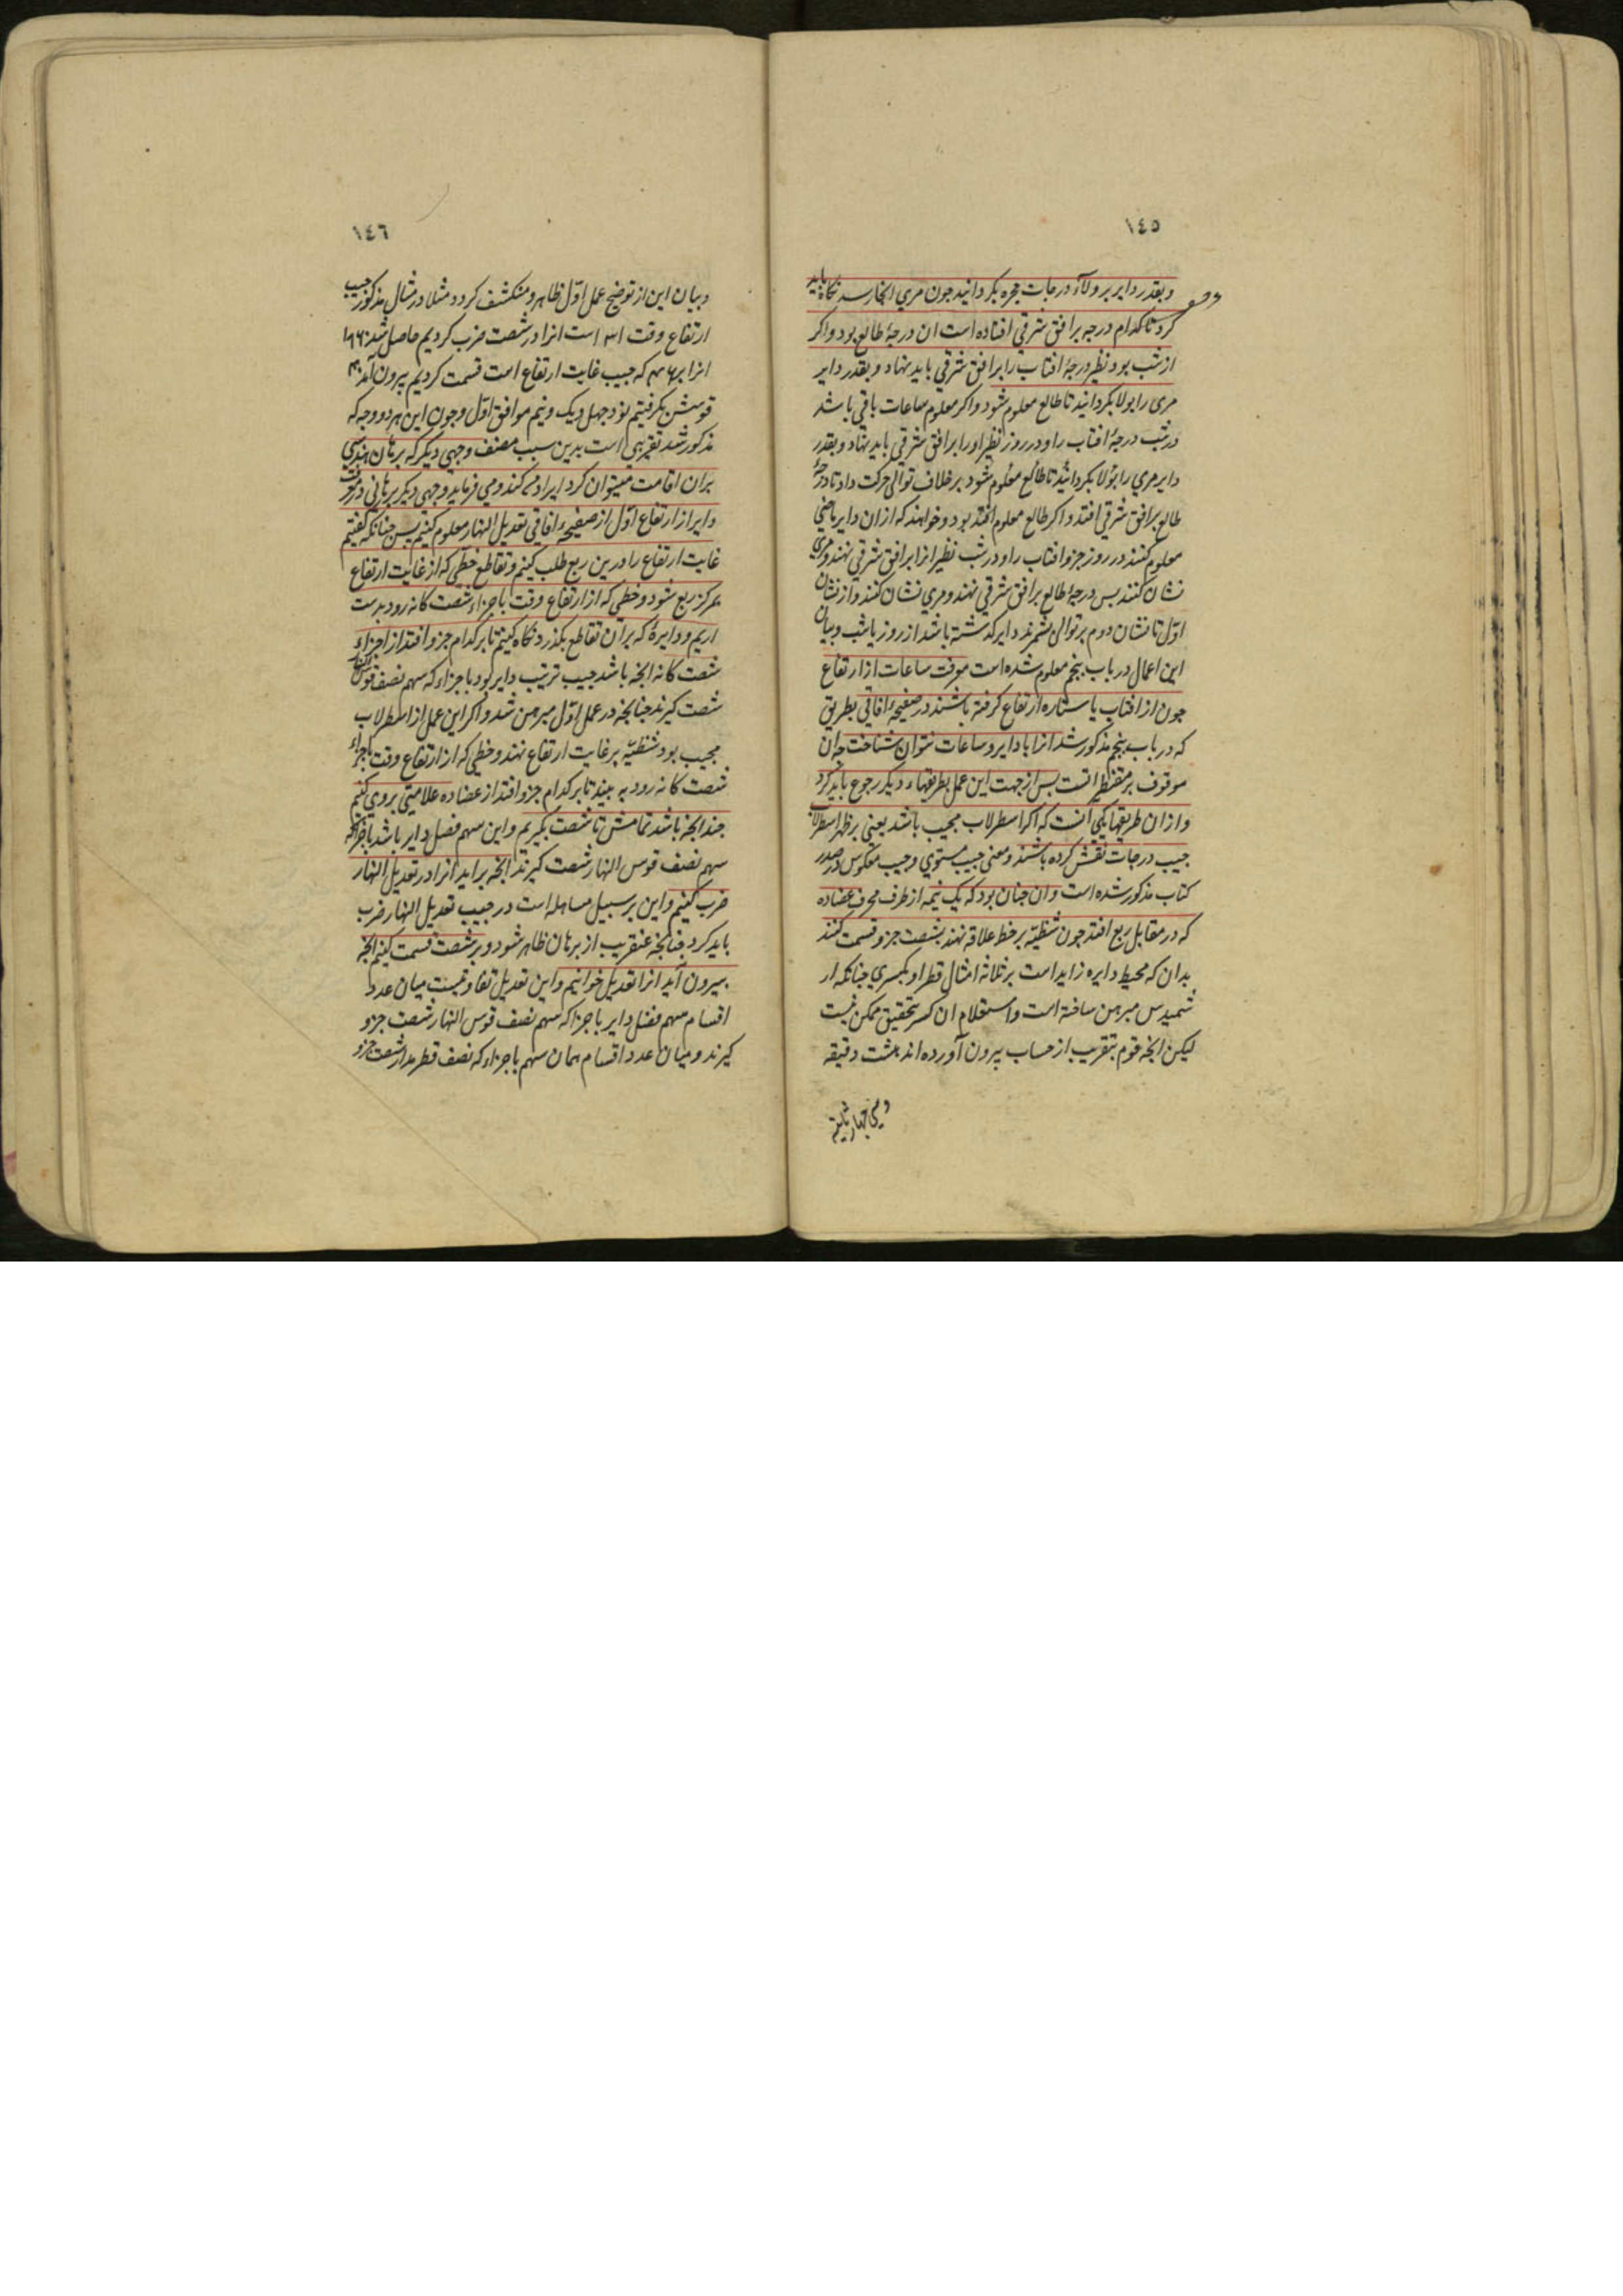 ١٤٥
وبقدر دایر بر ولآء درجات حجره بکردانید جون مري انجا رسد نکاه باید
کرد تا کدام درجه بر افق شرقي افتاده است ان درجهٔ طالع بود واکر
از شب بود نظیر درجهٔ افتاب را بر افق شرقي باید نهاد و بقدر دایر
مری را بولا بکردانید تا طالع معلوم شود واکر معلوم ساعات باقي باشد
در شب درجهٔ افتاب را ودر روز نظیر او را بر افق شرقي باید نهاد وبقدر
دایر مري را بولا بکردانید تا طالع معلوم شود بر خلاف توالی حرکت داد تا درجهٔ
طالع بر افق شرقي افتد واکر طالع معلوم افتد بود وخواهند که ازان دایر ماضي
معلوم کنند در روز جزو افتاب را ودر شب نظیر انرا بر افق شرقي نهند ومري
نشان کنند بس درجهٔ طالع بر افق شرقي نهند ومري نشان کنند واز نشان
اوّل تا نشان دوم بر توالی بشمرند دایر کذشته باشد از روز یا شب وبیان
این اعمال در باب بنجم معلوم شده است معرفت ساعات از ارتفاع
جون از افتاب یا ستاره ارتفاع کرفته باشند در صفیحهٔ افاقي بطریق
که در باب بنجم مذکور شد انرا با دایر وساعات نتوان شناخت جه ان
موقوف بر مقنطراتست بس از جهت این عمل بطریقهاء دیکر رجوع باید کرد
وازان طریقها یکي انست که اکر اسطرلاب مجیب باشد یعني بر ظهر اسطرلاب
جیب درجات نقش کرده باشند ومعنی جیب مستوي وجیب معکوس در صدر
کتاب مذکور شده است وان جنان بود که یک نیمه از طرف محرف عضاده
که در مقابل ربع افتد جون شظیّه بر خط علاقه نهند بشصت جزو قسمت کنند
بدان که محیط دایره زاید است بر ثلاثه امثال قطر او بکسري جنانکه ار
شمیدس مبرهن ساخته است واستعلام ان کسر بتحقیق ممکن نیست
لیکن انجه قوم بتقریب از حساب بیرون آورده اند هشت دقیقه
١٤٦
وبیان این از توضیح عمل اوّل ظاهر ومنکشف کردد مثلا در مثال مذکور جیب
ارتفاع وقت است انرا در شصت ضرب کردیم حاصل شد
انرا بر که جیب غایت ارتفاع است قسمت کردیم بیرون آمد
قوسش بکرفتیم بود جهل ویک ونیم موافق اوّل وجون این هر دو وجه که
مذکور شد تقریبي است بدین سبب مصنف وجهي دیکر که برهان هندسي
بران اقامت میتوان کرد ایراد مے کند ومي فرماید وجهي دیکر برهاني در معرفت
دایر از ارتفاع اوّل از صفیحهٔ افاقي تعدیل النهار معلوم کنیم بس جنانکه کفتیم
غایت ارتفاع را درین ربع طلب کنیم وتقاطع خطي که از غایت ارتفاع
بمرکز ربع شود وخطي که از ارتفاع وقت باجزاء شصت کانه رود بدست
اریم ودایرهٔ که بران تقاطع بکذرد نکاه کنیم تا بر کدام جزو افتد از اجزاء
شصت کانه انجه باشد جیب ترتیب دایر بود باجزاء که سهم نصف قوس النهار
شصت کیرند جنانجه در عمل اوّل مبرهن شد واکر این عمل از اسطرلاب
مجیب بود شظیّه بر غایت ارتفاع نهند وخطي که از ارتفاع وقت باجزاء
شصت کانه رود به بینند تا بر کدام جزو افتد از عضاده علامتي بروي کنیم
جندانجه باشد تمامش تا شصت بکیریم واین سهم فضل دایر باشد باجزائکه
سهم نصف قوس النهار شصت کیرند انجه براید انرا در تعدیل النهار
ضرب کنیم واین بر سبیل مساهله است در جیب تعدیل النهار ضرب
باید کرد جنانجه عنقریب از برهان ظاهر شود وبر شصت قسمت کنیم انجه
بیرون آید انرا تعدیل خوانیم واین تعدیل تفاوتیست میان عدد
اقسام سهم فضل دایر باجزا که سهم نصف قوس النهار شصت جزو
کیرند ومیان عدد اقسام همان سهم باجزاء که نصف قطر مدار شصت جزو